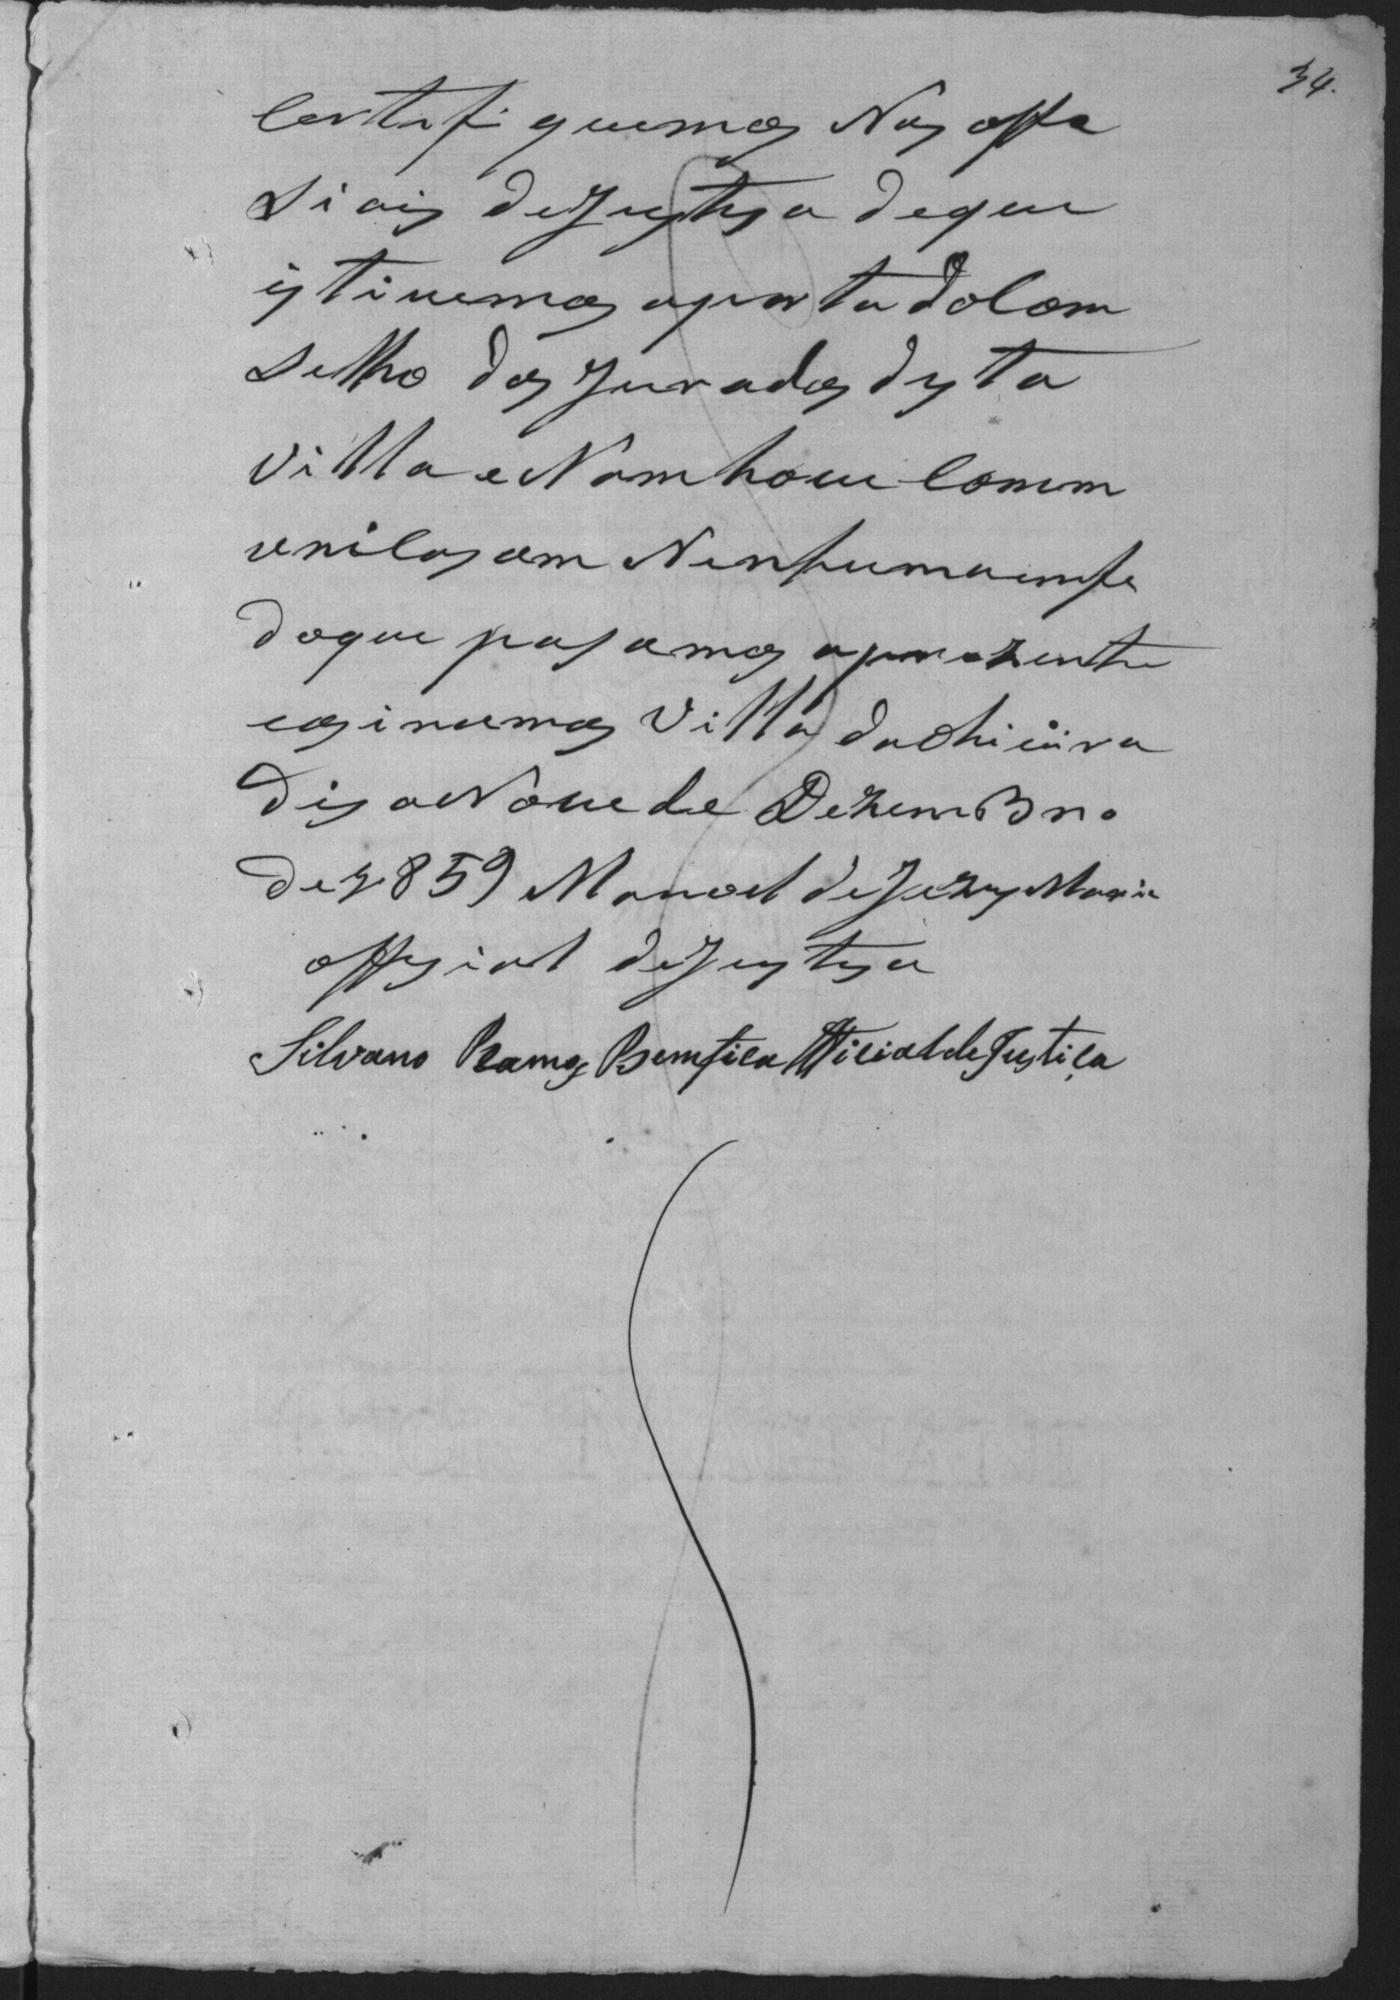 34.
Certefi quemos Nos offe
siais deJustisa deque
istivemos aporta doCom
selho dos Jurados desta
Villa e Nam houve Comm
unicasam Nenhuma emfe
doque pasamos aprezente
easinamos Villa da
Dis aNove de DezemBro
de 1859 Manoel deJezus Maria
offisial deJustisa
Silvano Ramos Bemfica Official de Justiça